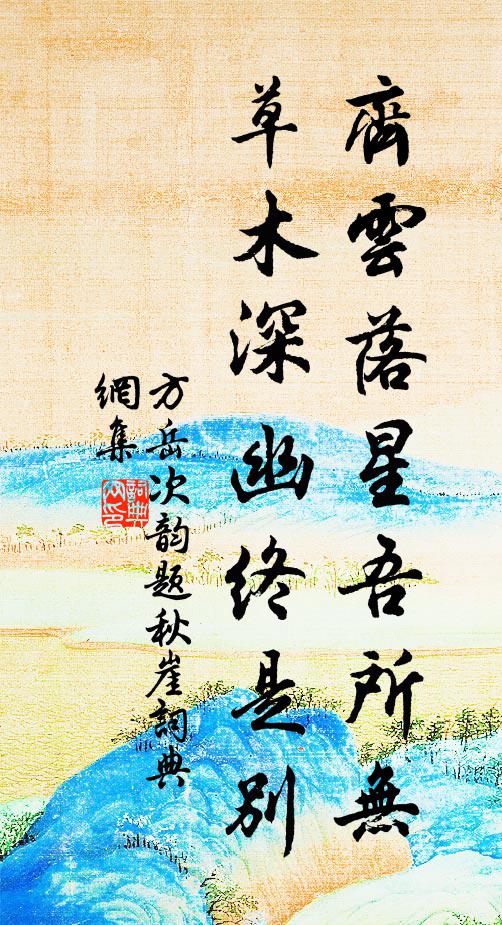 齊雲落星吾所無
草木深幽終是別
方岳次韵题秋崖詞典
網集
詞典